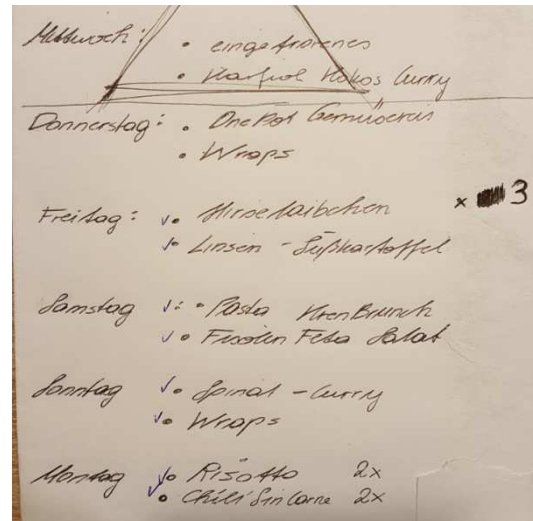 Mittwoch: • eingefrorenes
• Karfiol Kokos Curry
Donnerstag: • One Pot Gemüsereis
• Wraps
Freitag: ✓• Hirselaibchen × 3
✓• Linsen - Süßkartoffel
Samstag ✓: • Pasta Kren Brunch
✓• Fisolen Feta Salat
Sonntag ✓• Spinat - Curry
✓• Wraps
Montag ✓• Risotto 2x
✓• Chili Sin Carne 2x